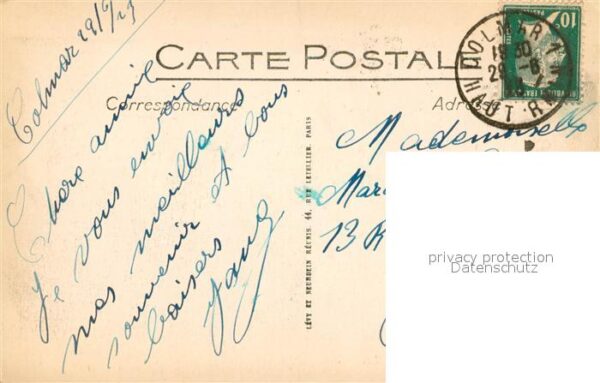 Colmar 29/6/23
CARTE POSTALE
Correspondance
Adresse
10
COLMAR
18 30
29 - 6
HAUT-RHIN
Chere amie
Je vous envoie
mes meilleures
souvenir et tous
baisers
LÉVY ET NEURDEIN RÉUNIS, 44, RUE LETELLIER, PARIS
Mademoiselle
Mar
13 R
privacy protection
Datenschutz